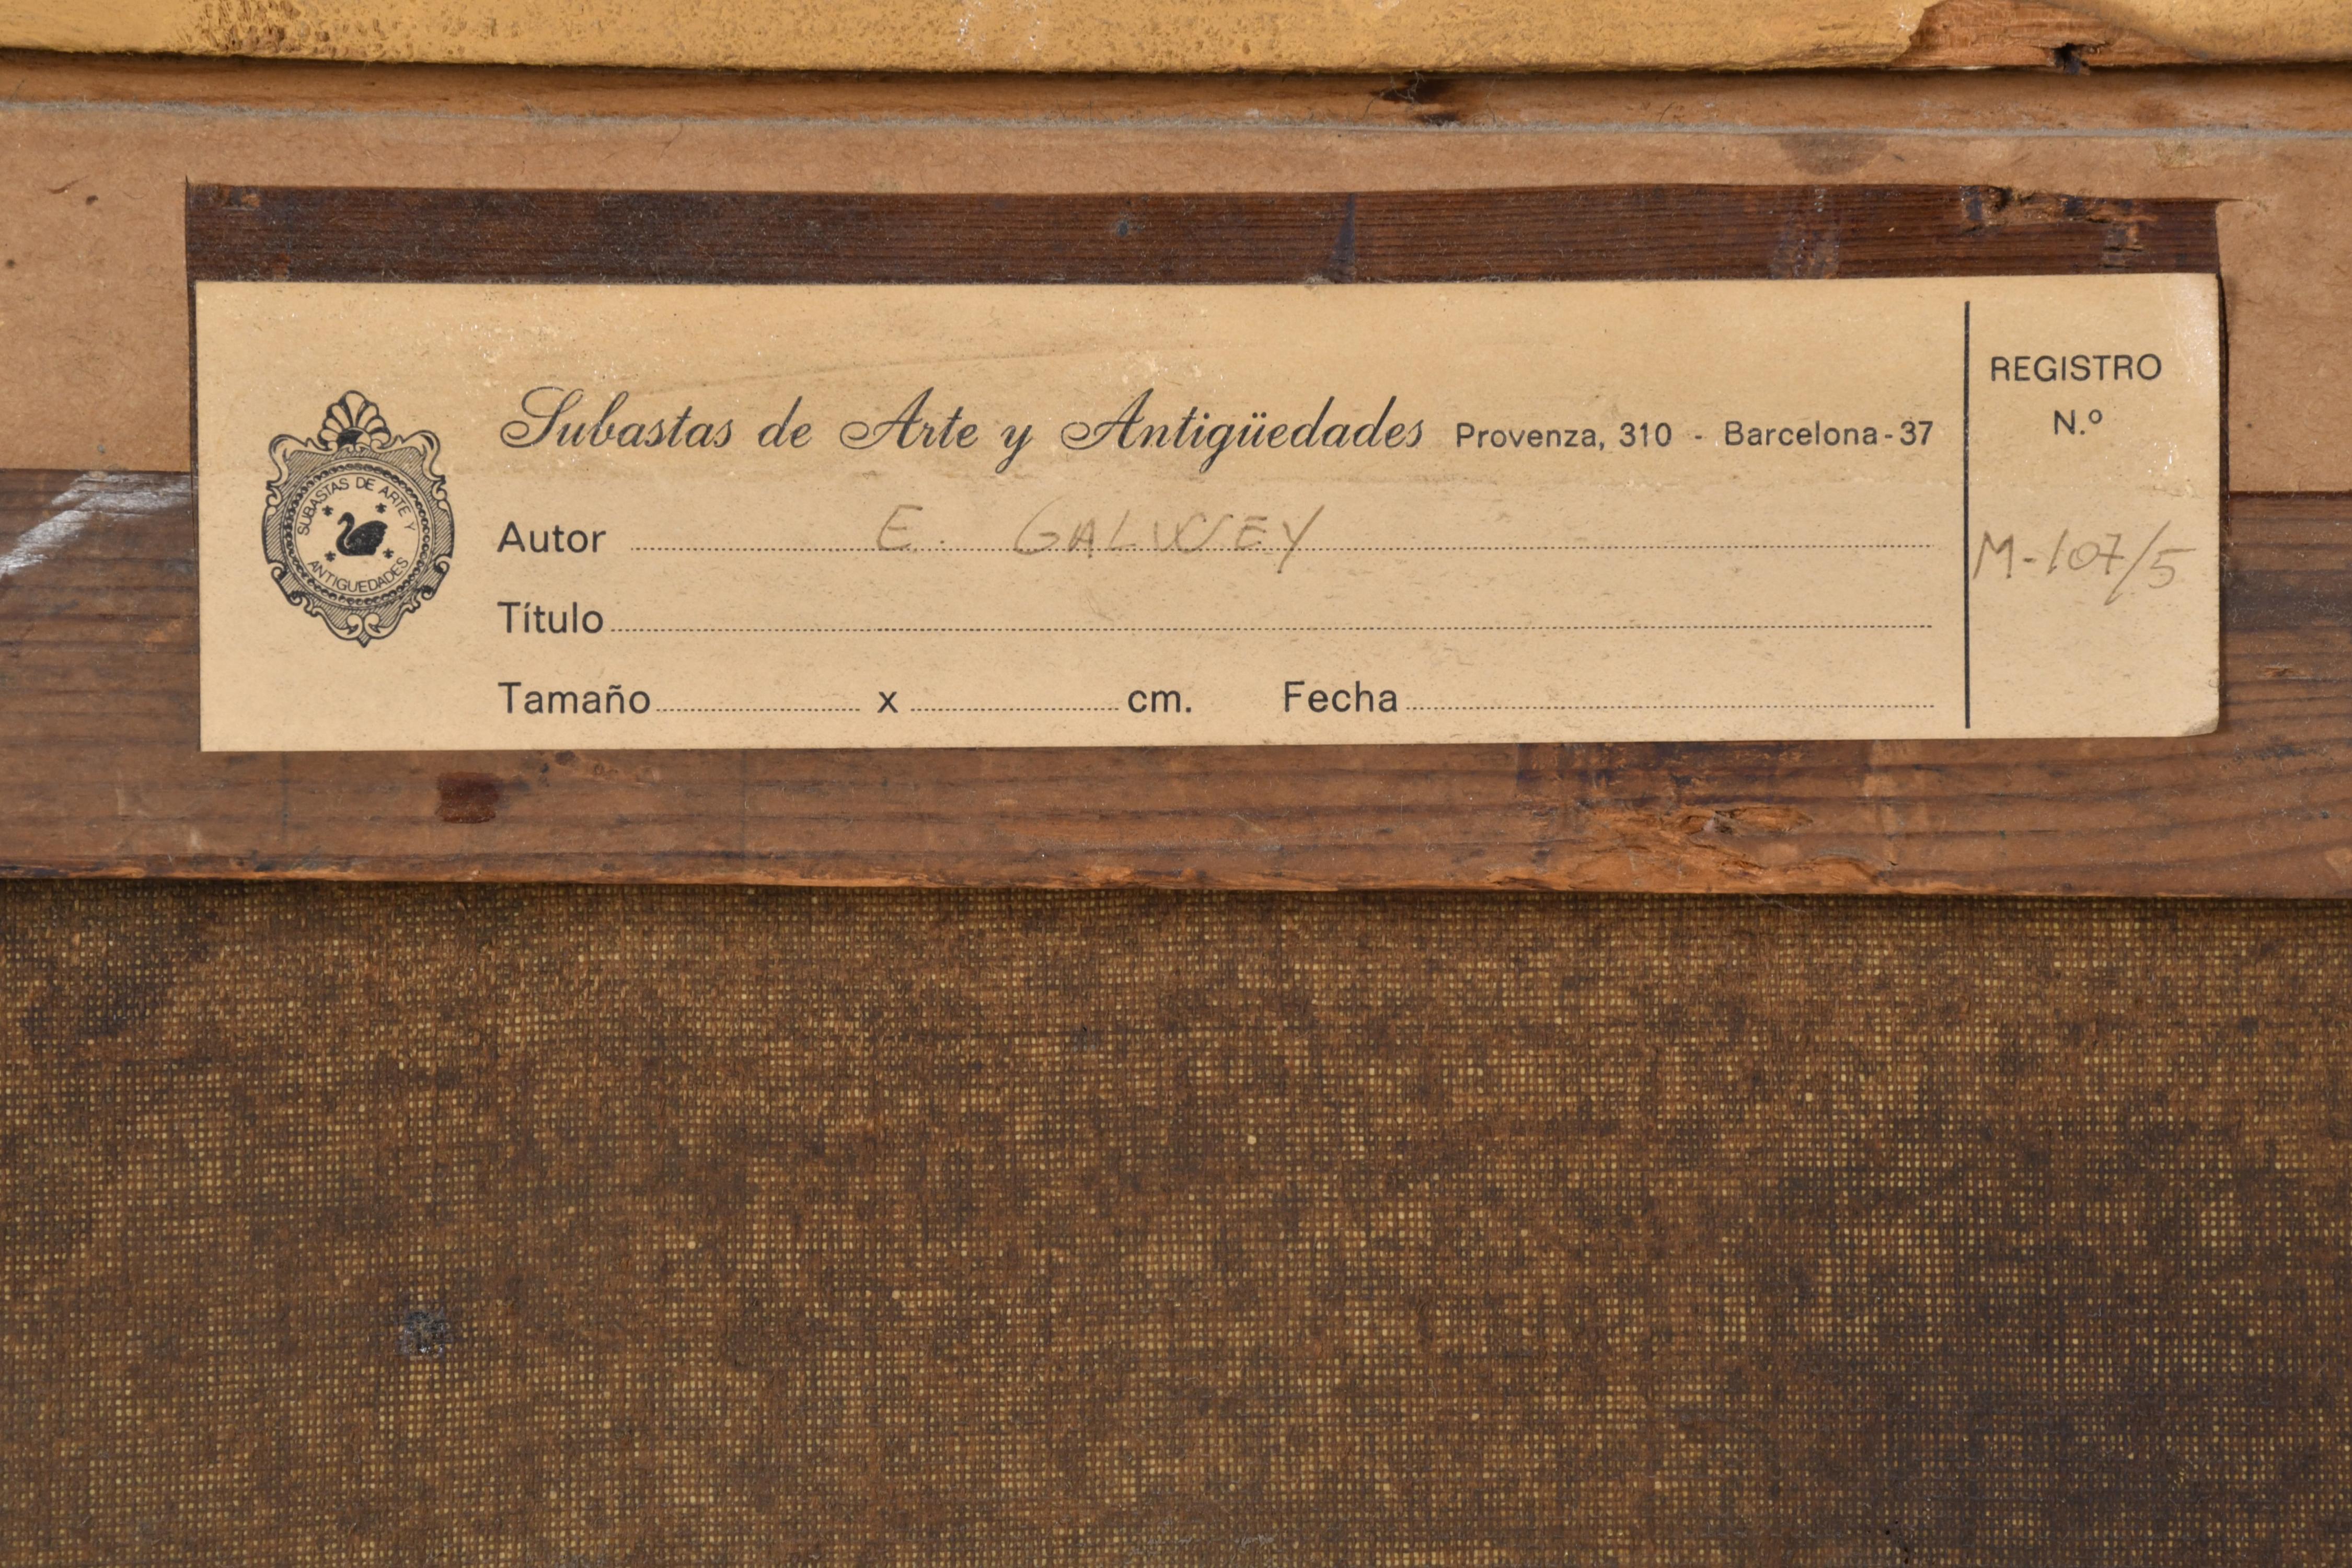 Subastas de Arte y Antigüedades Provenza, 310 - Barcelona-37
SUBASTAS DE ARTE Y
ANTIGUEDADES
Autor E. GALWEY
Título
Tamaño x cm. Fecha
REGISTRO
N.º
M-107/5